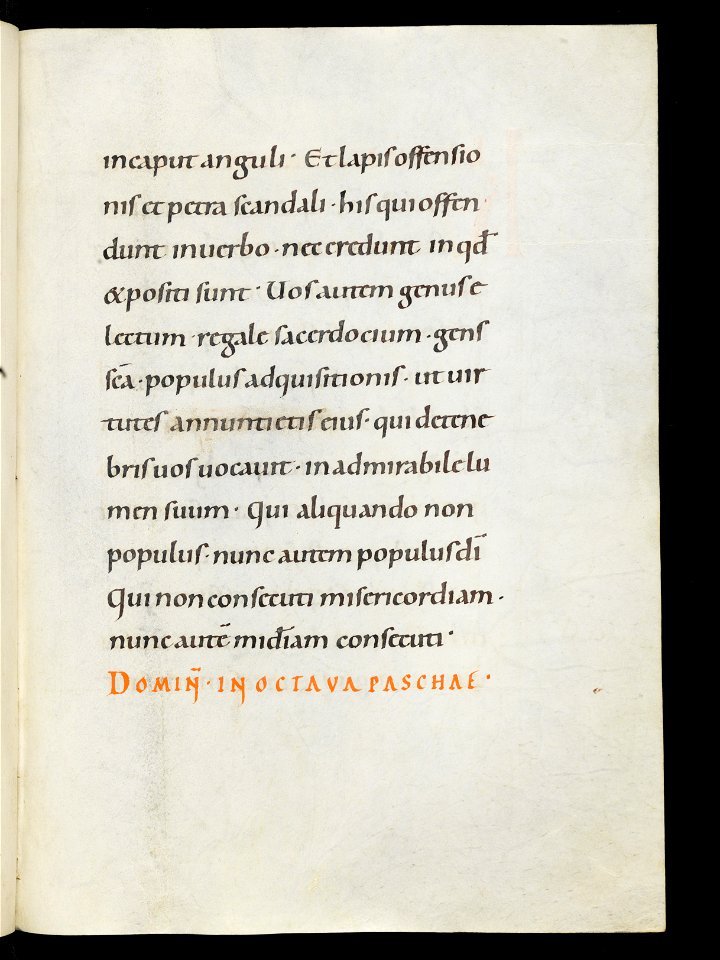 in caput anguli · Et lapis offensio
nis et petra scandali · his qui offen
dunt in uerbo · nec credunt in qd̄
& positi sunt · Uos autem genus e
lectum · regale sacerdocium · gens
sc̄a · populus adquisitionis · ut uir
tutes annuntietis eius · qui detene
bris uos uocauit · in admirabile lu
men suum · Qui aliquando non
populus · nunc autem populus dī
Qui non consecuti misericordiam ·
nunc autē midīam consecuti ·
DOMIN̄ · IN OCTAVA PASCHAE ·